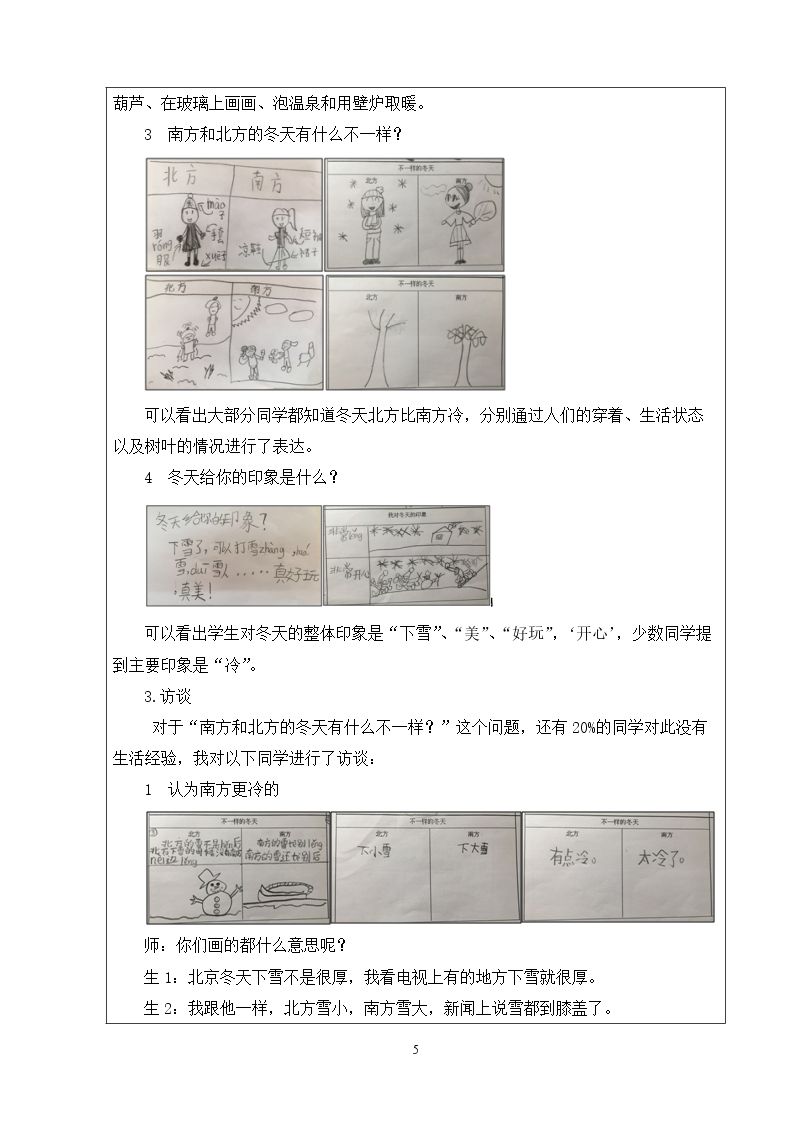 葫芦、在玻璃上画画、泡温泉和用壁炉取暖。
3 南方和北方的冬天有什么不一样？
北方 南方
mào
子
手套
羽
róng
服
xuē子
短袖
凉鞋
裙子
不一样的冬天
北方 南方
北方 南方
不一样的冬天
北方 南方
可以看出大部分同学都知道冬天北方比南方冷，分别通过人们的穿着、生活状态
以及树叶的情况进行了表达。
4 冬天给你的印象是什么？
冬天给你的印象？
下雪了，可以打雪zhàng，huá
雪，duī雪人……真好玩
，真美！
我对冬天的印象
非常
lěng
非常开心
可以看出学生对冬天的整体印象是“下雪”、“美”、“好玩”，‘开心’，少数同学提
到主要印象是“冷”。
3.访谈
对于“南方和北方的冬天有什么不一样？”这个问题，还有20%的同学对此没有
生活经验，我对以下同学进行了访谈：
1 认为南方更冷的
不一样的冬天
③ 北方 南方
北方的雪不是hěn后
北方下雪的时候没有南方
nèi边lěng
南方的雪特别lěng
南方的雪还特别后
不一样的冬天
北方 南方
下小雪 下大雪
不一样的冬天
北方 南方
有点冷。 太冷了。
师：你们画的都什么意思呢？
生1：北京冬天下雪不是很厚，我看电视上有的地方下雪就很厚。
生2：我跟他一样，北方雪小，南方雪大，新闻上说雪都到膝盖了。
5